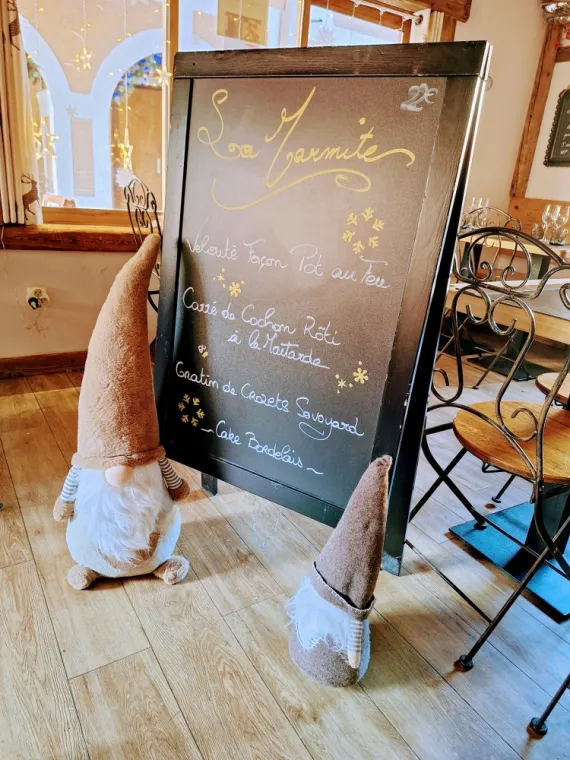 22€
La Marmite
Velouté Façon Pot au Feu
Carré de Cochon Rôti
à la Moutarde
Gratin de Crozets Savoyard
~ Cake Bordelais ~